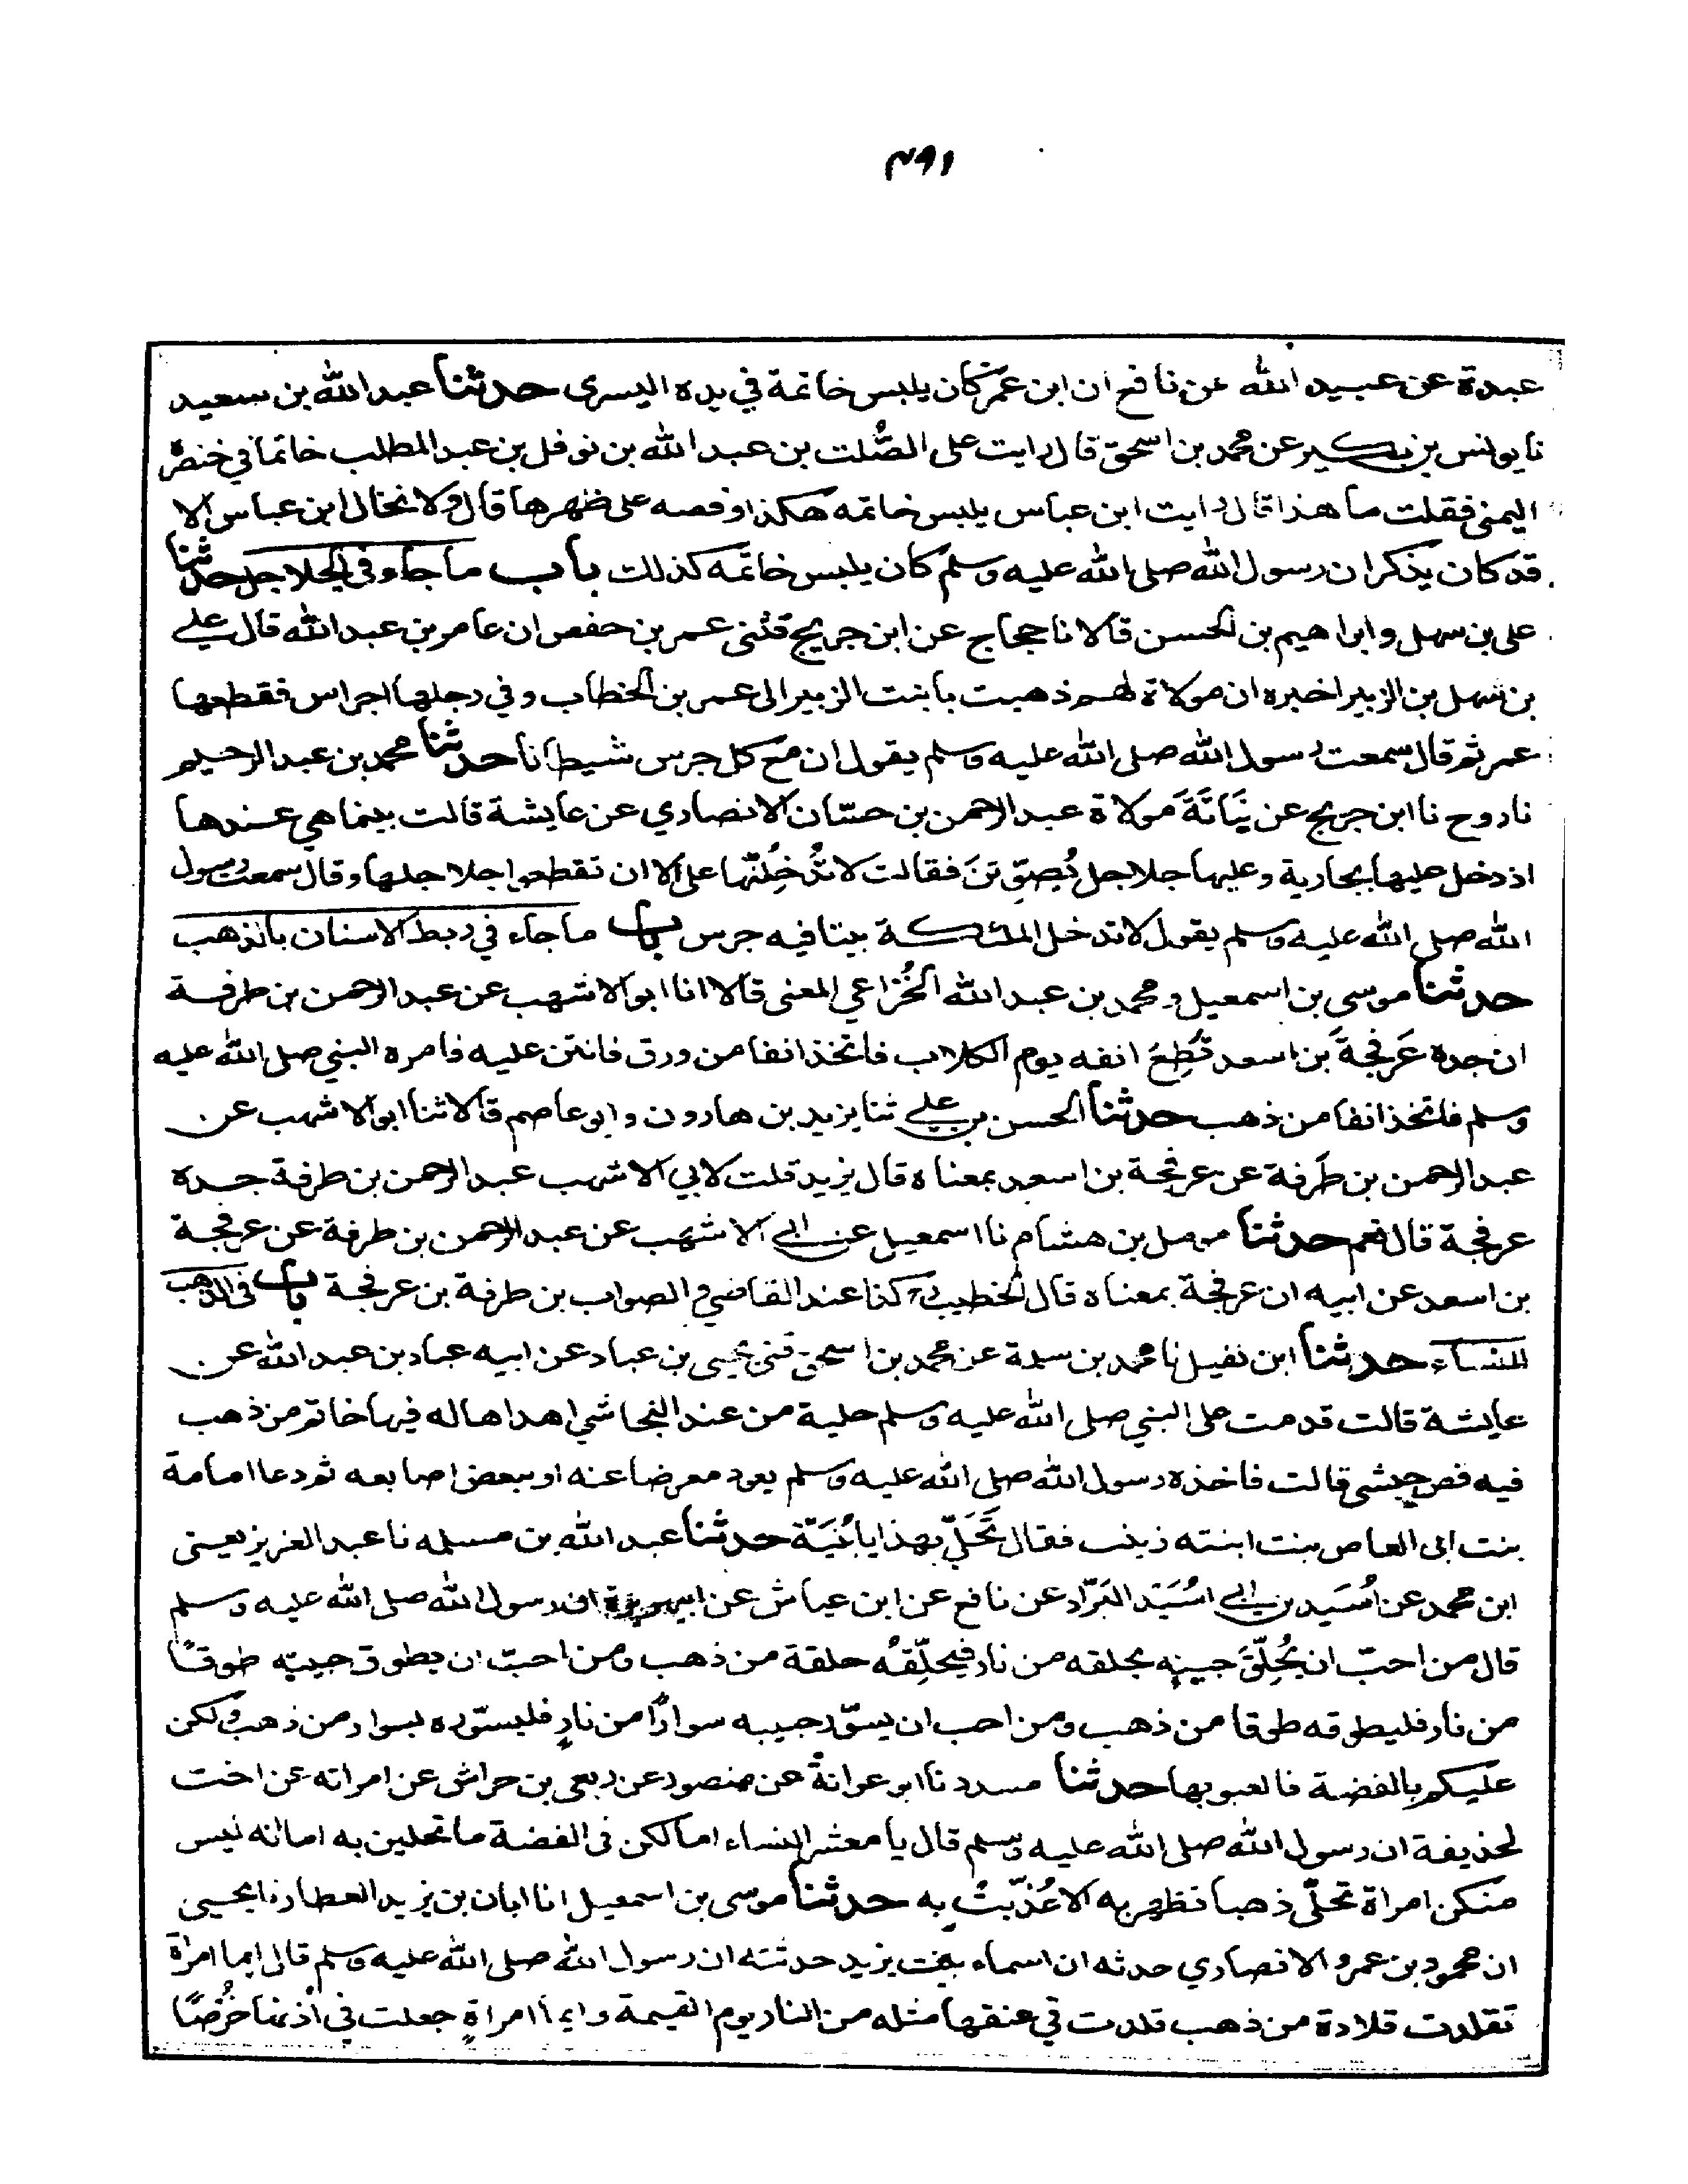 ٤٩١
عبدة عن عبيد الله عن نافع ان ابن عمر كان يلبس خاتمة في يده اليسرى حدثنا عبد الله بن سعيد
نا يونس بن بكير عن محمد بن اسحق قال رايت على الصُّلت بن عبد الله بن نوفل بن عبد المطلب خاتما في خنصره
اليمنى فقلت ما هذا قال رايت ابن عباس يلبس خاتمه هكذا وفصه على ظهرها قال ولا نخال ابن عباس الا
قد كان يذكر ان رسول الله صلى الله عليه وسلم كان يلبس خاتمه كذلك باب ما جاء في الجلاجل حدثنا
على بن سهل وابراهيم بن الحسن قالا نا حجاج عن ابن جريج ثنى عمر بن حفص ان عامر بن عبد الله قال علي
بن سهل بن الزبير اخبره ان مولاة لهم ذهبت بابنت الزبير الى عمر بن الخطاب وفي رجلها اجراس فقطعها
عمر ثم قال سمعت رسول الله صلى الله عليه وسلم يقول ان مع كل جرس شيطانا حدثنا محمد بن عبد الرحيم
نا روح نا ابن جريج عن بُنَانَةَ مولاة عبد الرحمن بن حسّان الانصاري عن عايشة قالت بينما هي عندها
اذ دخل عليها بجارية وعليها جلاجل يُصَوِّتنَ فقالت لا تُدْخِلُنّها علي الا ان تقطعوا جلاجلها وقال سمعت رسول
الله صلى الله عليه وسلم يقول لا تدخل الملئكة بيتا فيه جرس باب ما جاء في ربط الاسنان بالذهب
حدثنا موسى بن اسمعيل ومحمد بن عبد الله الخُزاعي المعنى قالا انا ابو الاشهب عن عبد الرحمن بن طرفة
ان جده عَرفجَةَ بن اسعد قُطِعَ انفه يوم الكلاب فاتخذ انفا من ورق فانتن عليه فامره النبي صلى الله عليه
وسلم فاتخذ انفا من ذهب حدثنا الحسن بن علي ثنا يزيد بن هارون وابو عاصم قالا ثنا ابو الاشهب عن
عبد الرحمن بن طَرفة عن عرفجة بن اسعد بمعناه قال يزيد قلت لابي الاشهب عبد الرحمن بن طرفة جده
عرفجة قال نعم حدثنا مومل بن هشام نا اسمعيل عن ابي الاشهب عن عبد الرحمن بن طرفة عن عرفجة
بن اسعد عن ابيه ان عرفجة بمعناه قال الخطيب كذا عند القاضي والصواب بن طرفة بن عرفجة باب في الذهب
للنساء حدثنا ابن نفيل نا محمد بن سلمة عن محمد بن اسحق ثنى يحيى بن عباد عن ابيه عباد بن عبد الله عن
عايشة قالت قدمت على النبي صلى الله عليه وسلم حلية من عند النجاشي اهداها له فيها خاتم من ذهب
فيه فص حبشى قالت فاخذه رسول الله صلى الله عليه وسلم بعود معرضا عنه او ببعض اصابعه ثم دعا امامة
بنت ابى العاص بنت ابنته زينب فقال تَحَلّي بهذا يا بُنَيّة حدثنا عبد الله بن مسلمه نا عبد العزيز يعنى
ابن محمد عن اُسَيد بن ابي اسُيَد البَرَّاد عن نافع عن ابن عياش عن ابي هريرة ان رسول الله صلى الله عليه وسلم
قال من احبّ ان يُحلِّقَ حبيبه بحلقه من نار فليحلِّقهُ حلقة من ذهب ومن احبّ ان يطوق حبيبه طوقًا
من نار فليطوقه طوقا من ذهب ومن احب ان يسوّر حبيبه سوارًا من نارٍ فليسوّره بسوار من ذهب ولكن
عليكم بالفضة فالعبو بها حدثنا مسدد نا ابو عوانة عن منصور عن ربعى بن حراش عن امراته عن اخت
لحذيفة ان رسول الله صلى الله عليه وسلم قال يا معشر النساء اما لكن فى الفضة ما تحلين به اما انه ليس
منكن امراة تحلّى ذهبا تظهر به الا عُذّبتُ به حدثنا موسى بن اسمعيل انا ابان بن يزيد العطار نا يحيى
ان محمود بن عمرو الانصاري حدثه ان اسماء بنت يزيد حدثته ان رسول الله صلى الله عليه وسلم قال ايما امراة
تقلدت قلادة من ذهب قلدت في عنقها مثله من النار يوم القيمة وايما امراةٍ جعلت في اُذنها خُرْصًا